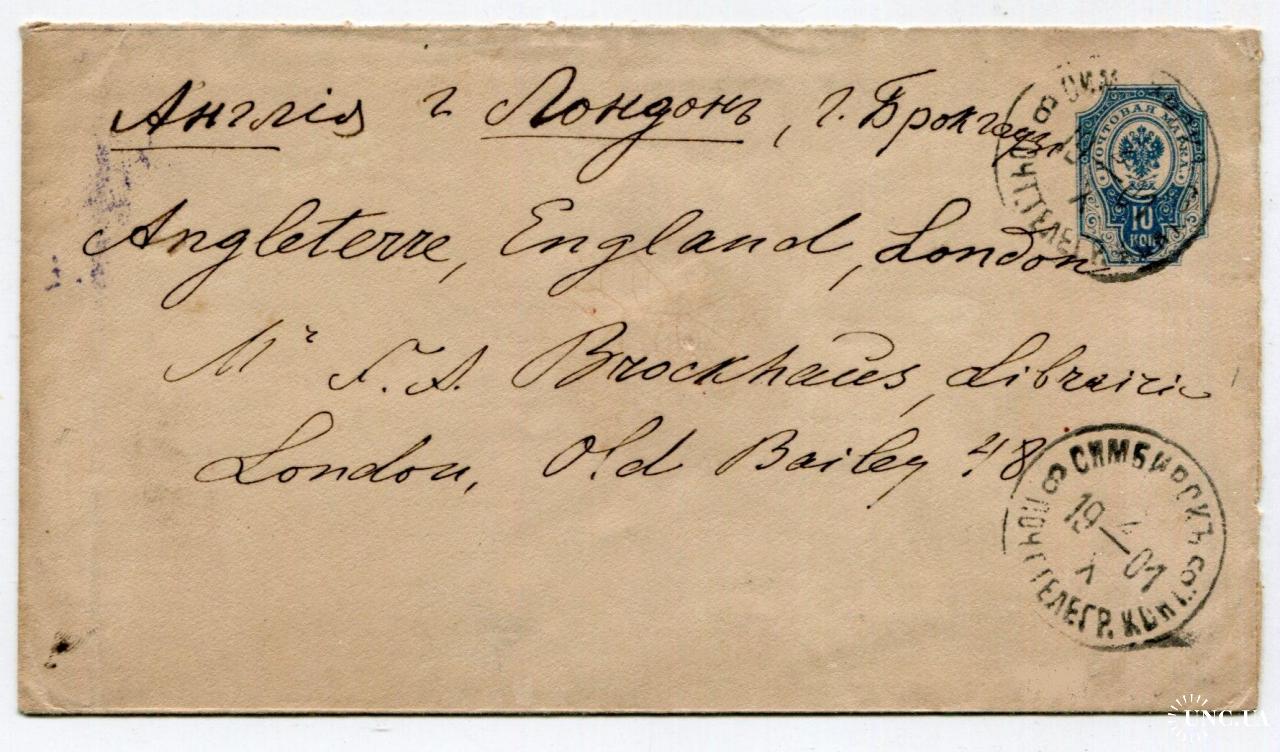 Англія г Лондонъ, г. Брокгаузъ
Angleterre, England, London
Mr F. A. Brockhaus, Librairie
London, Old Bailey 48
ПОЧТОВАЯ МАРКА
10
КОП
СИМ
ПОЧТ. ТЕЛЕГР.
8 СИМБИРСКЪ 8
19 X 01
ПОЧТ. ТЕЛЕГР. КОНТ.
UNC.UA